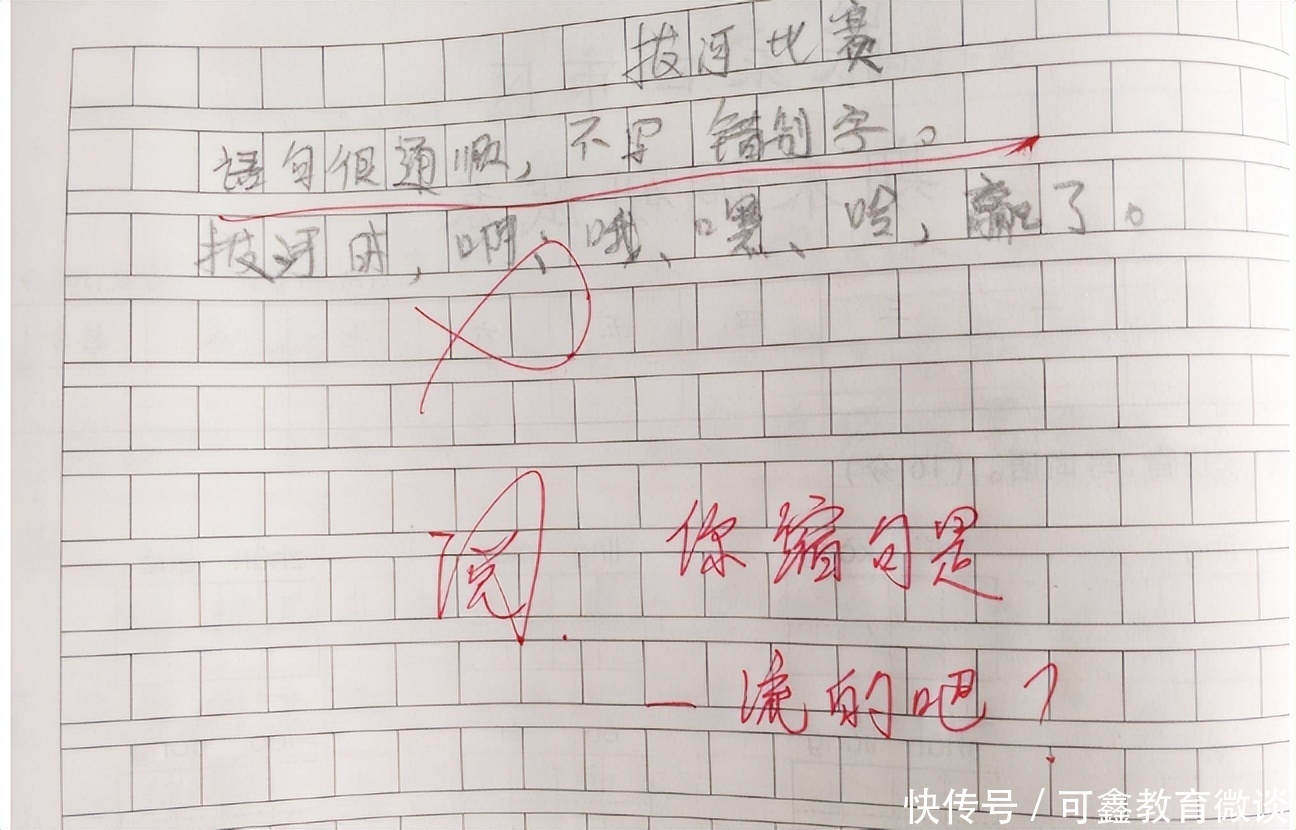 拔河比赛
语句但通顺,不写错别字。
拔河时,啊、哦、嘿、哈,赢了。
阅.
你缩句是
一流的吧?
快传号 / 可鑫教育微谈